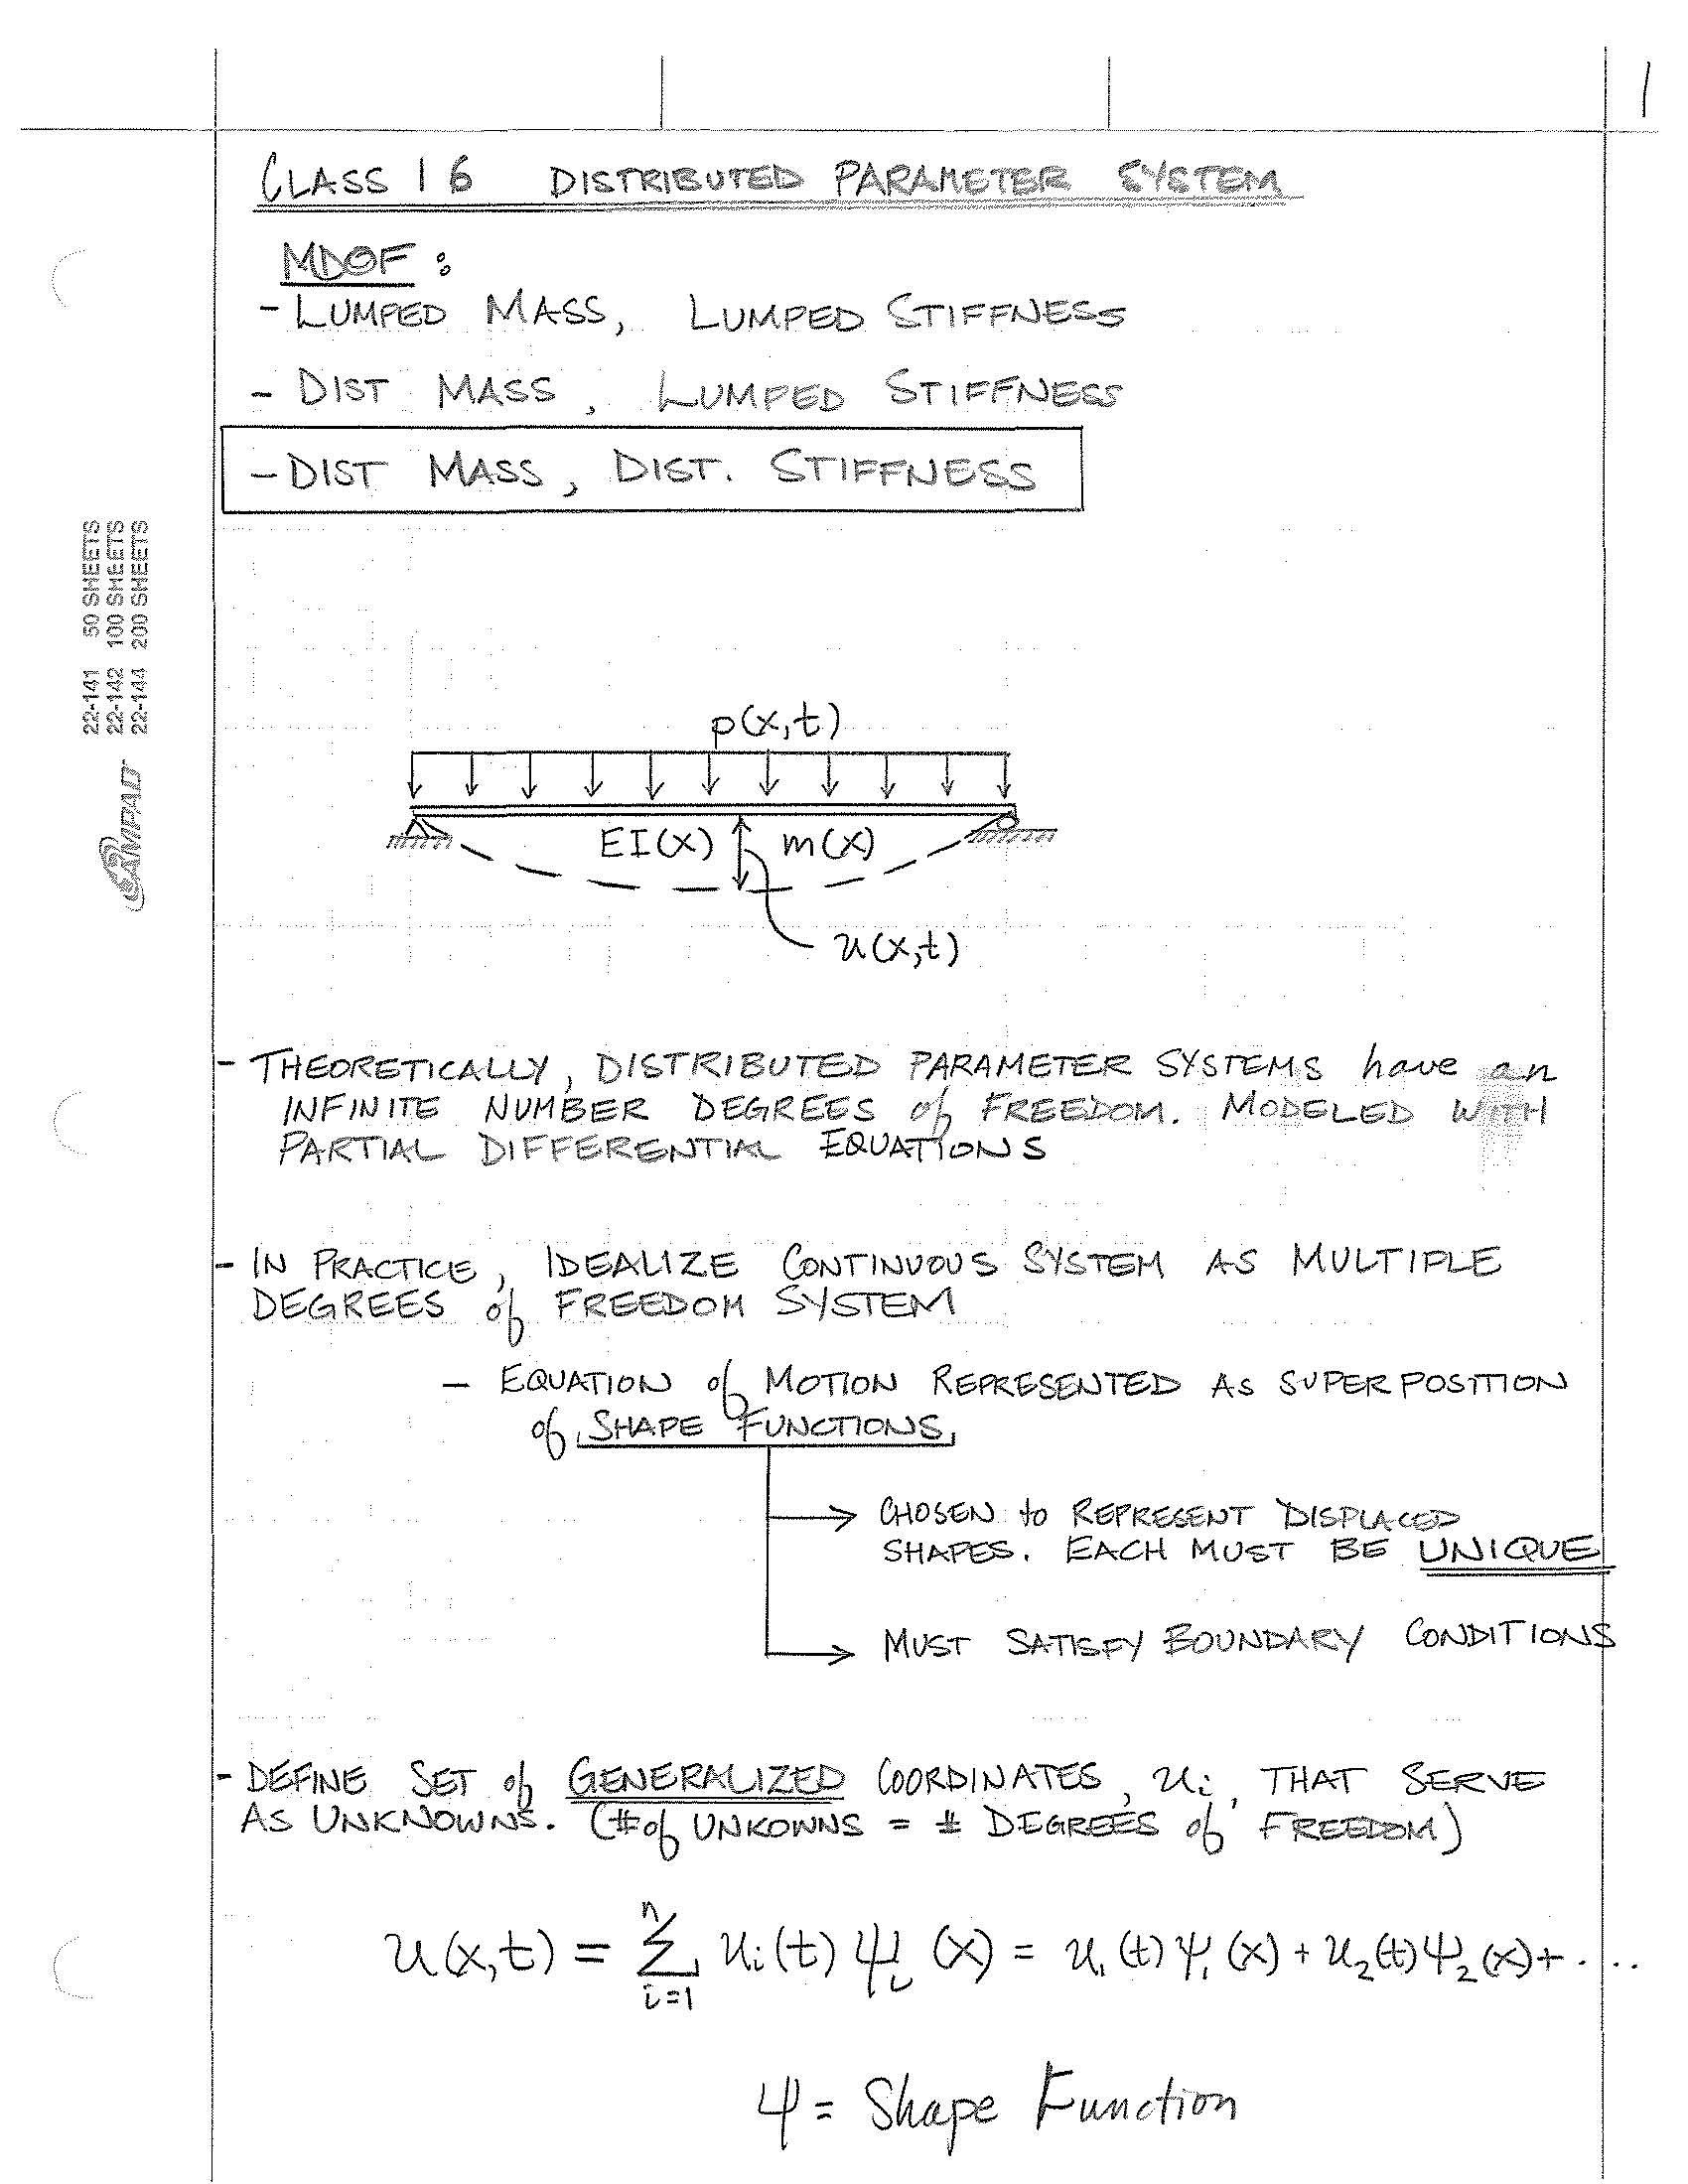 1
CLASS 16 DISTRIBUTED PARAMETER SYSTEM
MDOF :
- LUMPED MASS, LUMPED STIFFNESS
- DIST MASS, LUMPED STIFFNESS
- DIST MASS, DIST. STIFFNESS
22-141 50 SHEETS
22-142 100 SHEETS
22-144 200 SHEETS
AMPAD
p(x,t)
EI(x) m(x)
u(x,t)
- THEORETICALLY, DISTRIBUTED PARAMETER SYSTEMS have an
INFINITE NUMBER DEGREES of FREEDOM. MODELED WITH
PARTIAL DIFFERENTIAL EQUATIONS
- IN PRACTICE, IDEALIZE CONTINUOUS SYSTEM AS MULTIPLE
DEGREES of FREEDOM SYSTEM
- EQUATION of MOTION REPRESENTED AS SUPERPOSITION
of SHAPE FUNCTIONS
CHOSEN to REPRESENT DISPLACED
SHAPES. EACH MUST BE UNIQUE
MUST SATISFY BOUNDARY CONDITIONS
- DEFINE SET of GENERALIZED COORDINATES, uᵢ, THAT SERVE
AS UNKNOWNS. (# of UNKOWNS = # DEGREES of FREEDOM)
u(x,t) = Σ_{i=1}^{n} uᵢ(t) ψᵢ(x) = u₁(t) ψ₁(x) + u₂(t) ψ₂(x) + ....
ψ = Shape Function